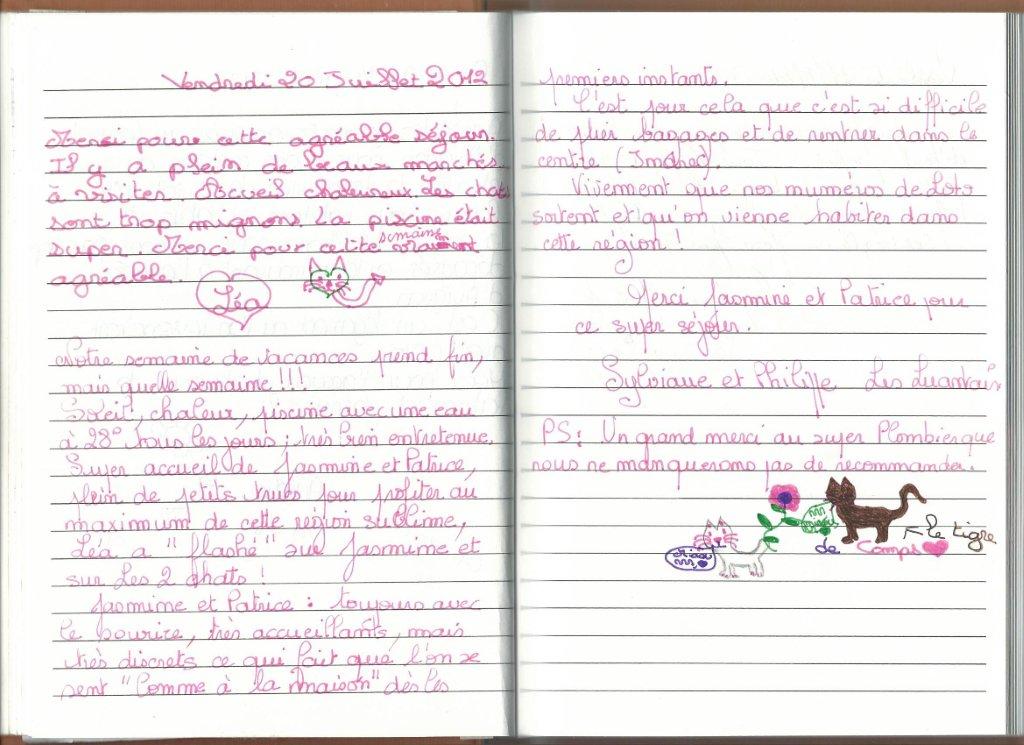 Vendredi 20 Juillet 2012
Merci pour cette agréable séjour.
Il y a plein de beaux marchés
à visiter. Accueil chaleureux. Les chats
sont trop mignons. La piscine était
super. Merci pour cette semaine vraiment
agréable.
Léa
Notre semaine de vacances prend fin,
mais quelle semaine !!!
Soleil, chaleur, piscine avec une eau
à 28° tous les jours ; très bien entretenue.
Super accueil de Jasmine et Patrice,
plein de petits trucs pour profiter au
maximum de cette région sublime,
Léa a "flashé" sur Jasmine et
sur les 2 chats !
Jasmine et Patrice : toujours avec
le sourire, très accueillants, mais
très discrets ce qui fait que l'on se
sent "Comme à la maison" dès les
premiers instants.
C'est pour cela que c'est si difficile
de plier bagages et de rentrer dans le
centre (Indre).
Vivement que nos numéros de Loto
sortent et qu'on vienne habiter dans
cette région !
Merci Jasmine et Patrice pour
ce super séjour.
Sylviane et Philippe Les Luantais
PS : Un grand merci au super Plombier que
nous ne manquerons pas de recommander.
le tigre
de Camps